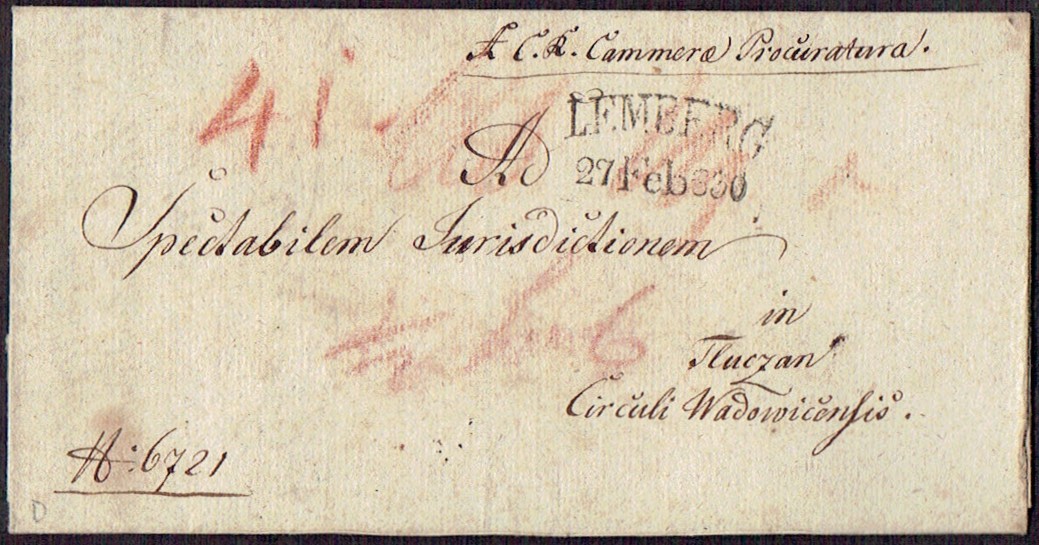 A C. K. Cammeræ Procuratura.
41
LEMBERG
27 Feb 830
Ad
Spectabilem Jurisdictionem
in
Tluczan
Circuli Wadowicensis.
6
N: 6721
D